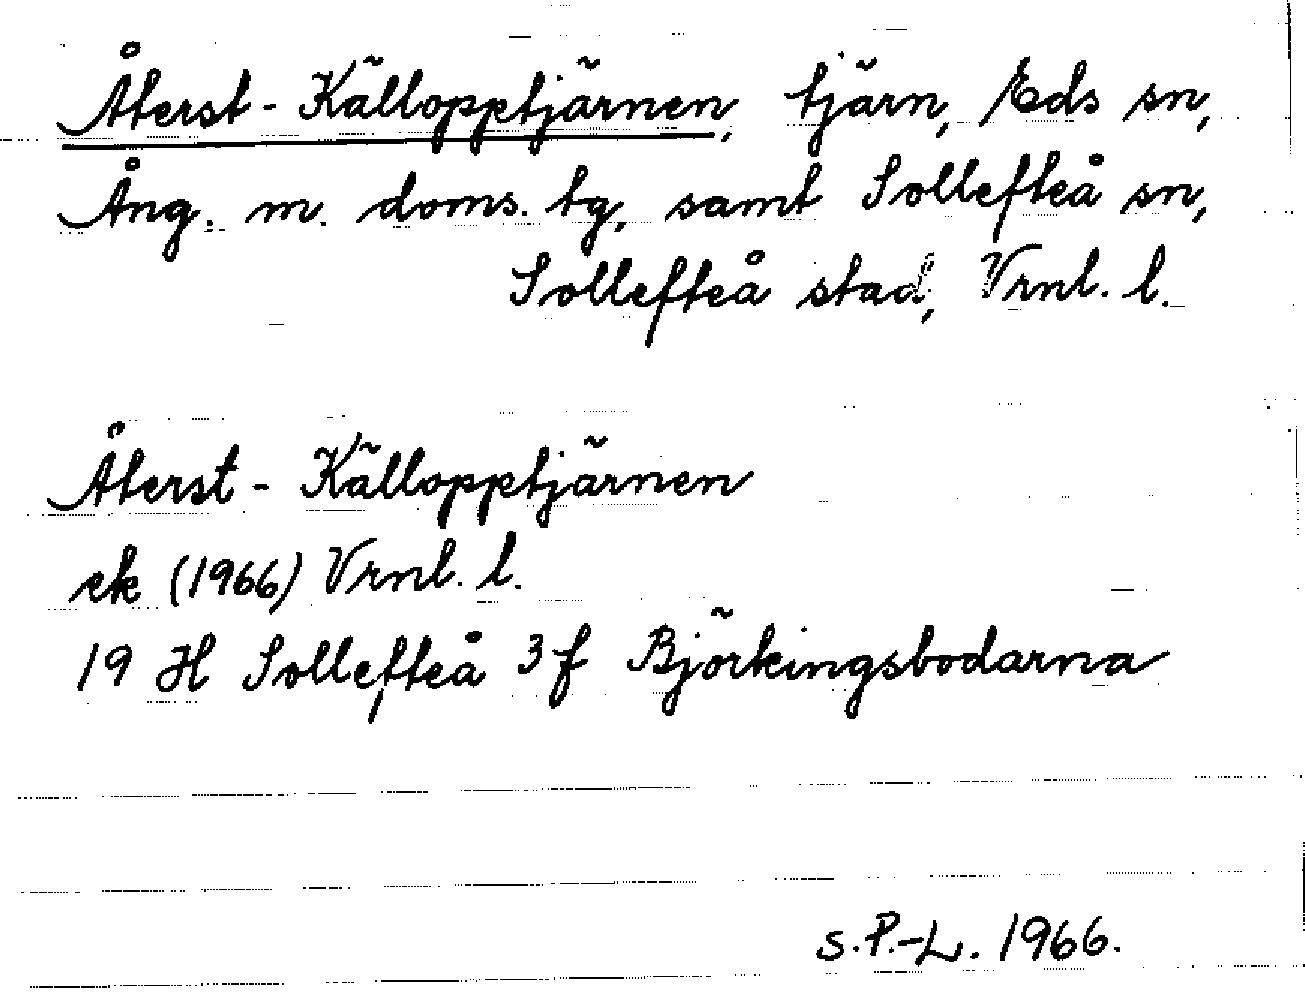 Återst-Källopptjärnen, tjärn, Eds sn,
Ång. m. doms. tg, samt Sollefteå sn,
Sollefteå stad, Vrnl. l.
Återst-Källopptjärnen
ek (1966) Vrnl. l.
19 H Sollefteå 3f Björkingsbodarna
S.P.-L. 1966.